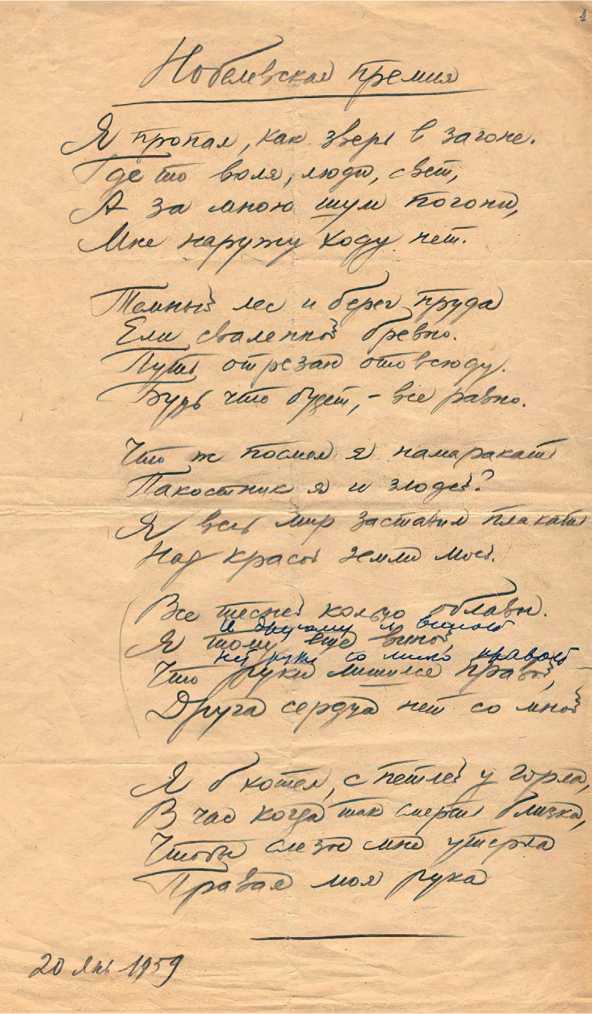 1
Нобелевская премия
Я пропал, как зверь в загоне.
Где то воля, люди, свет,
А за мною шум погони,
Мне наружу ходу нет.
Темный лес и берег пруда
Ели сваленной бревно.
Путь отрезан отовсюду.
Будь что будет, – все равно.
Что ж посмел я намаракать
Пакостник я и злодей?
Я весь мир заставил плакать
Над красой земли моей.
Все тесней кольцо облавы.
И другому я виной
Я тому еще виной,
Нет руки со мною правой
Что руки лишился правой,
Друга сердца нет со мной
Я б хотел, с петлей у горла,
В час когда так смерть близка,
Чтобы слезы мне утерла
Правая моя рука
20 янв 1959